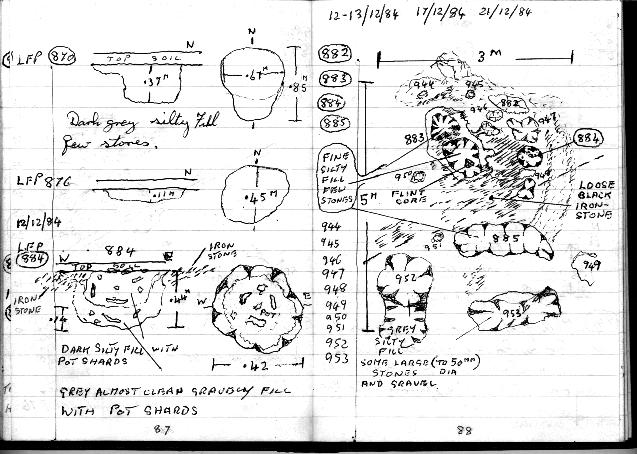 LFP 870
N
N
TOP SOIL
.37M
.67M
.85M
Dark grey silty Fill
few stones.
LFP 876
N
N
.11M
.45M
12/12/84
LFP
884
W
884
E
IRON
STONE
TOP SOIL
IRON
STONE
.44M
W
E
POT
.42
DARK SILTY FILL WITH
POT SHARDS
GREY ALMOST CLEAN GRAVELLY FILL
WITH POT SHARDS
87
12-13/12/84 17/12/84 21/12/84
882
883
884
885
3M
944
945
946
882
947
883
884
FINE
SILTY
FILL
FEW
STONES
950
FLINT
CORE
5M
LOOSE
BLACK
IRON-
STONE
944
945
946
947
948
949
950
951
952
953
951
885
949
952
953
GREY
SILTY
FILL
SOME LARGE (TO 50mm
STONES DIA
AND GRAVEL
88